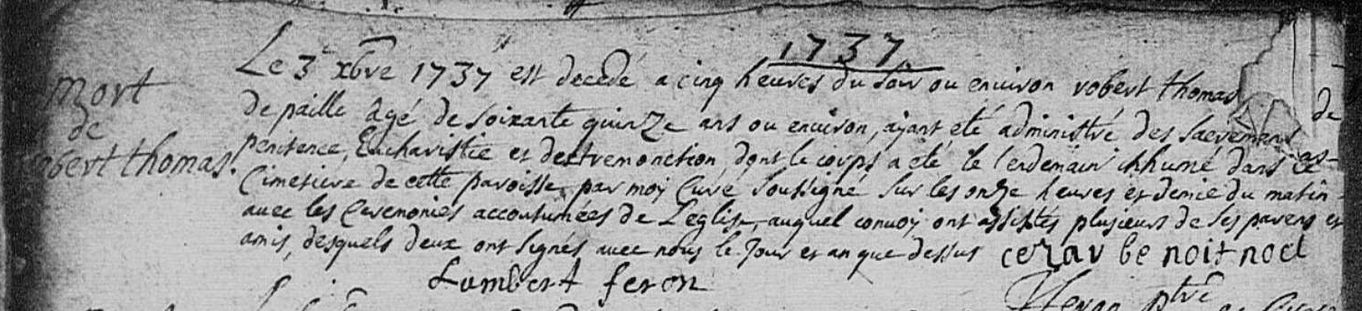 1737
mort
de
obert thomas.
Le 3e xbre 1737 est decedé a cinq heures du soir ou environ robert thomas
de paille âgé de soixante quinze ans ou environ, ayant été administré des sacremens de
penitence, Eucharistie et dextremonction, dont le corps a été le lendemain inhumé dans ce
Cimetiere de cette paroisse, par moy Curé soussigné sur les onze heures et demie du matin
avec les Ceremonies accoutumées de Leglise, auquel convoy ont assistes plusieurs de ses parens et
amis, desquels deux ont signés avec nous le Jour et an que dessus cezar benoit noel
Lambert feron
ptre